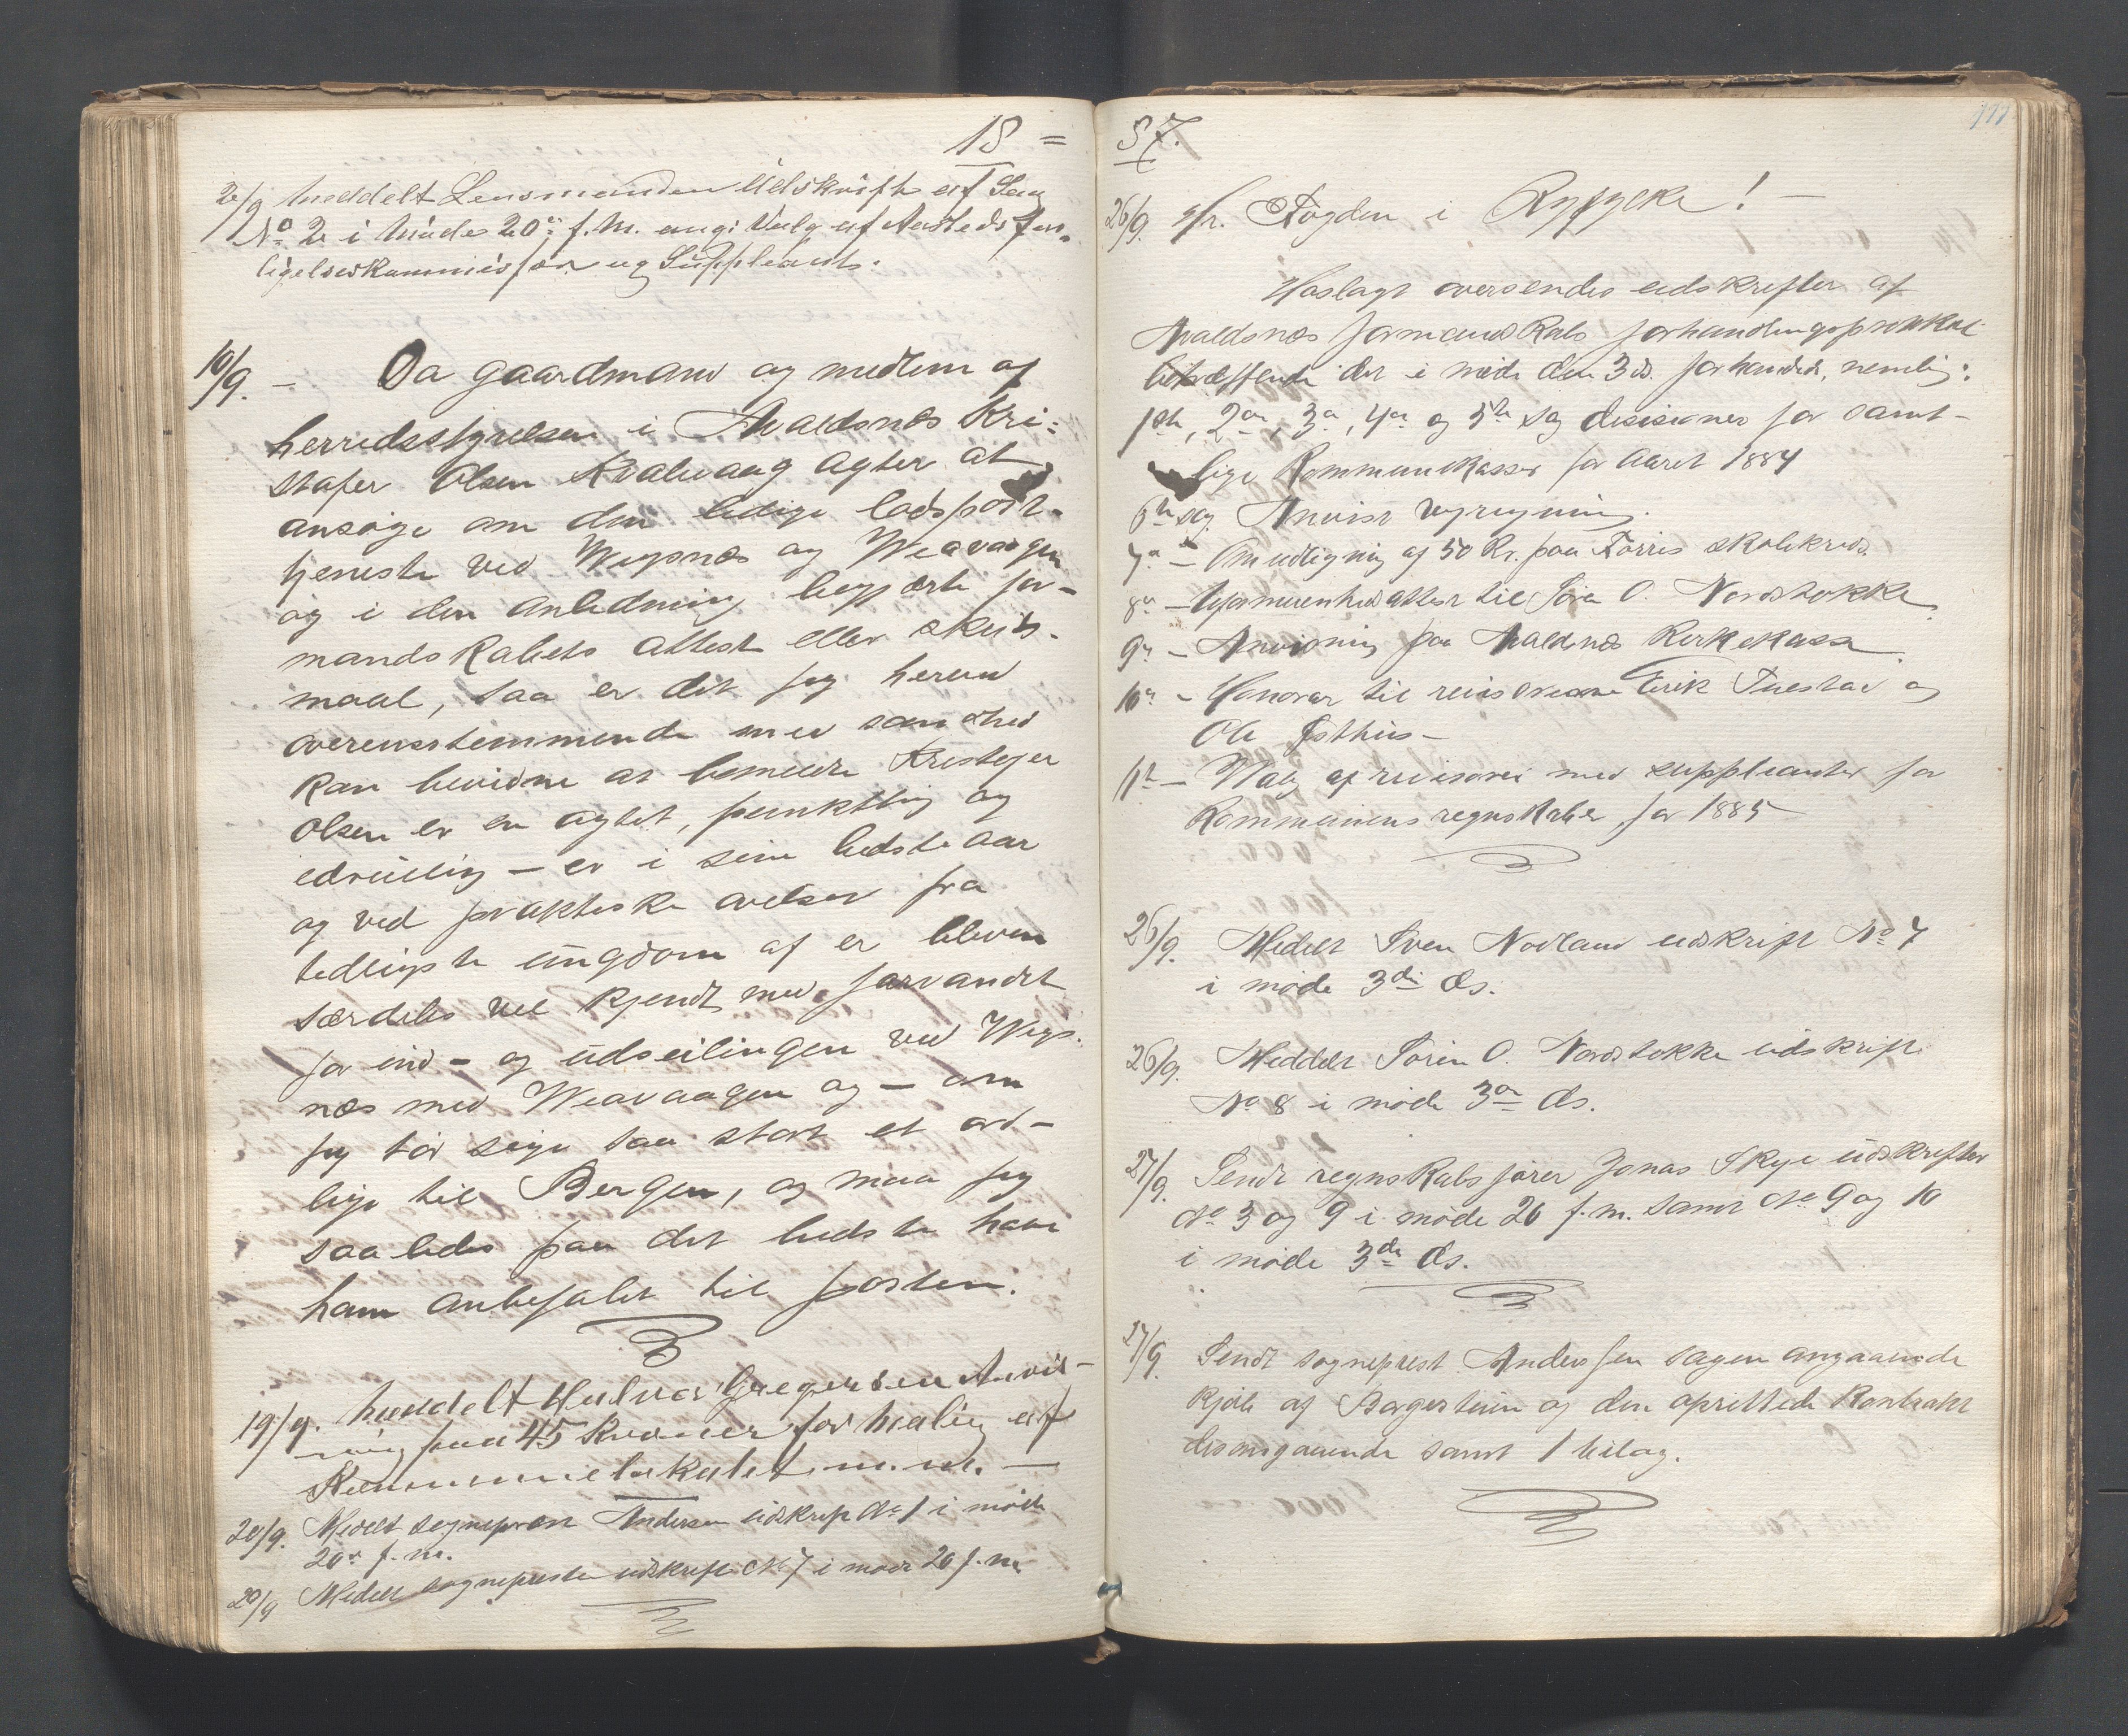 18 =
2/9 Meddelt Lensmanden Udskrift af Sag
No 2 i Møde 20de f.M. ang: Valg af Aastedsfor-
ligelseskommissær og Suppleant.
10/9. - Da gaardmand og medlem af
herredsstyrelsen i Avaldsnes Kri-
stofer Olsen Kvalevaag agter at
ansøge om den ledige lodspost-
tjeneste ved Wigsnæs og Weavaagen
og i den anledning begjært for-
mandskabets attest eller skuds-
maal, saa er det jeg herved
overensstemmende med sandhed
kan bevidne at bemeldte Kristofer
Olsen er en agtet, punktlig og
edruelig - er i sin bedste aar
og ved praktiske øvelser fra
tidligste ungdom af er bleven
særdeles vel kjendt med farvandet
for ind- og udseilingen ved Wigs-
næs med Weavaagen og - om
jeg tør sige saa stort et ord -
lige til Bergen, og maa jeg
saaledes paa det bedste have
ham anbefalet til posten.
19/9. Meddelt Halvor Gregersen Anvis-
ning paa 45 Kroner for maling af
Kommunelokalet m.m. -
20/9. Medelt sogneprest Andersen udskrift No 1 i møde
20de f.m.
20/9 Medelt sognepresten udskrift No 7 i møde 20 f.m.
87.
177
26/9. Hr. Fogden i Ryfylke! -
Hoslagt oversendes udskrifter af
Avaldsnes formandskabs forhandlingsprotokol
betræffende det i møde den 3 ds. forhandlede, nemlig:
1ste, 2den, 3de, 4de og 5te sag desisioner for samt-
lige Kommunekasser for aaret 1884
6te sag. Anvist
7de - Om udligning af 50 Kr. paa Førris skolekreds
8de - til Søren O. Nordstokke
9de - Anvisning paa Avaldsnes Kirkekasse
10de - Honorar til revisorerne Erik Tuestad og
Ole Østhus -
11te - Valg af revisorer med suppleanter for
Kommunens regnskaber for 1885
26/9. Medelt Sven Nodland udskrift No 7
i møde 3die ds.
26/9. Meddelt Søren O. Nordstokke udskrift
No 8 i møde 3de ds.
27/9. Sendt regnskabsfører Jonas Skye udskrifter
No 3 og 9 i møde 20 f.m. samt No 9 og 10
i møde 3de ds.
27/9 Sendt sogneprest Andersen sagen angaaende
kjøb af og den oprettede Kontrakt
desangaaende samt 1 bilag.